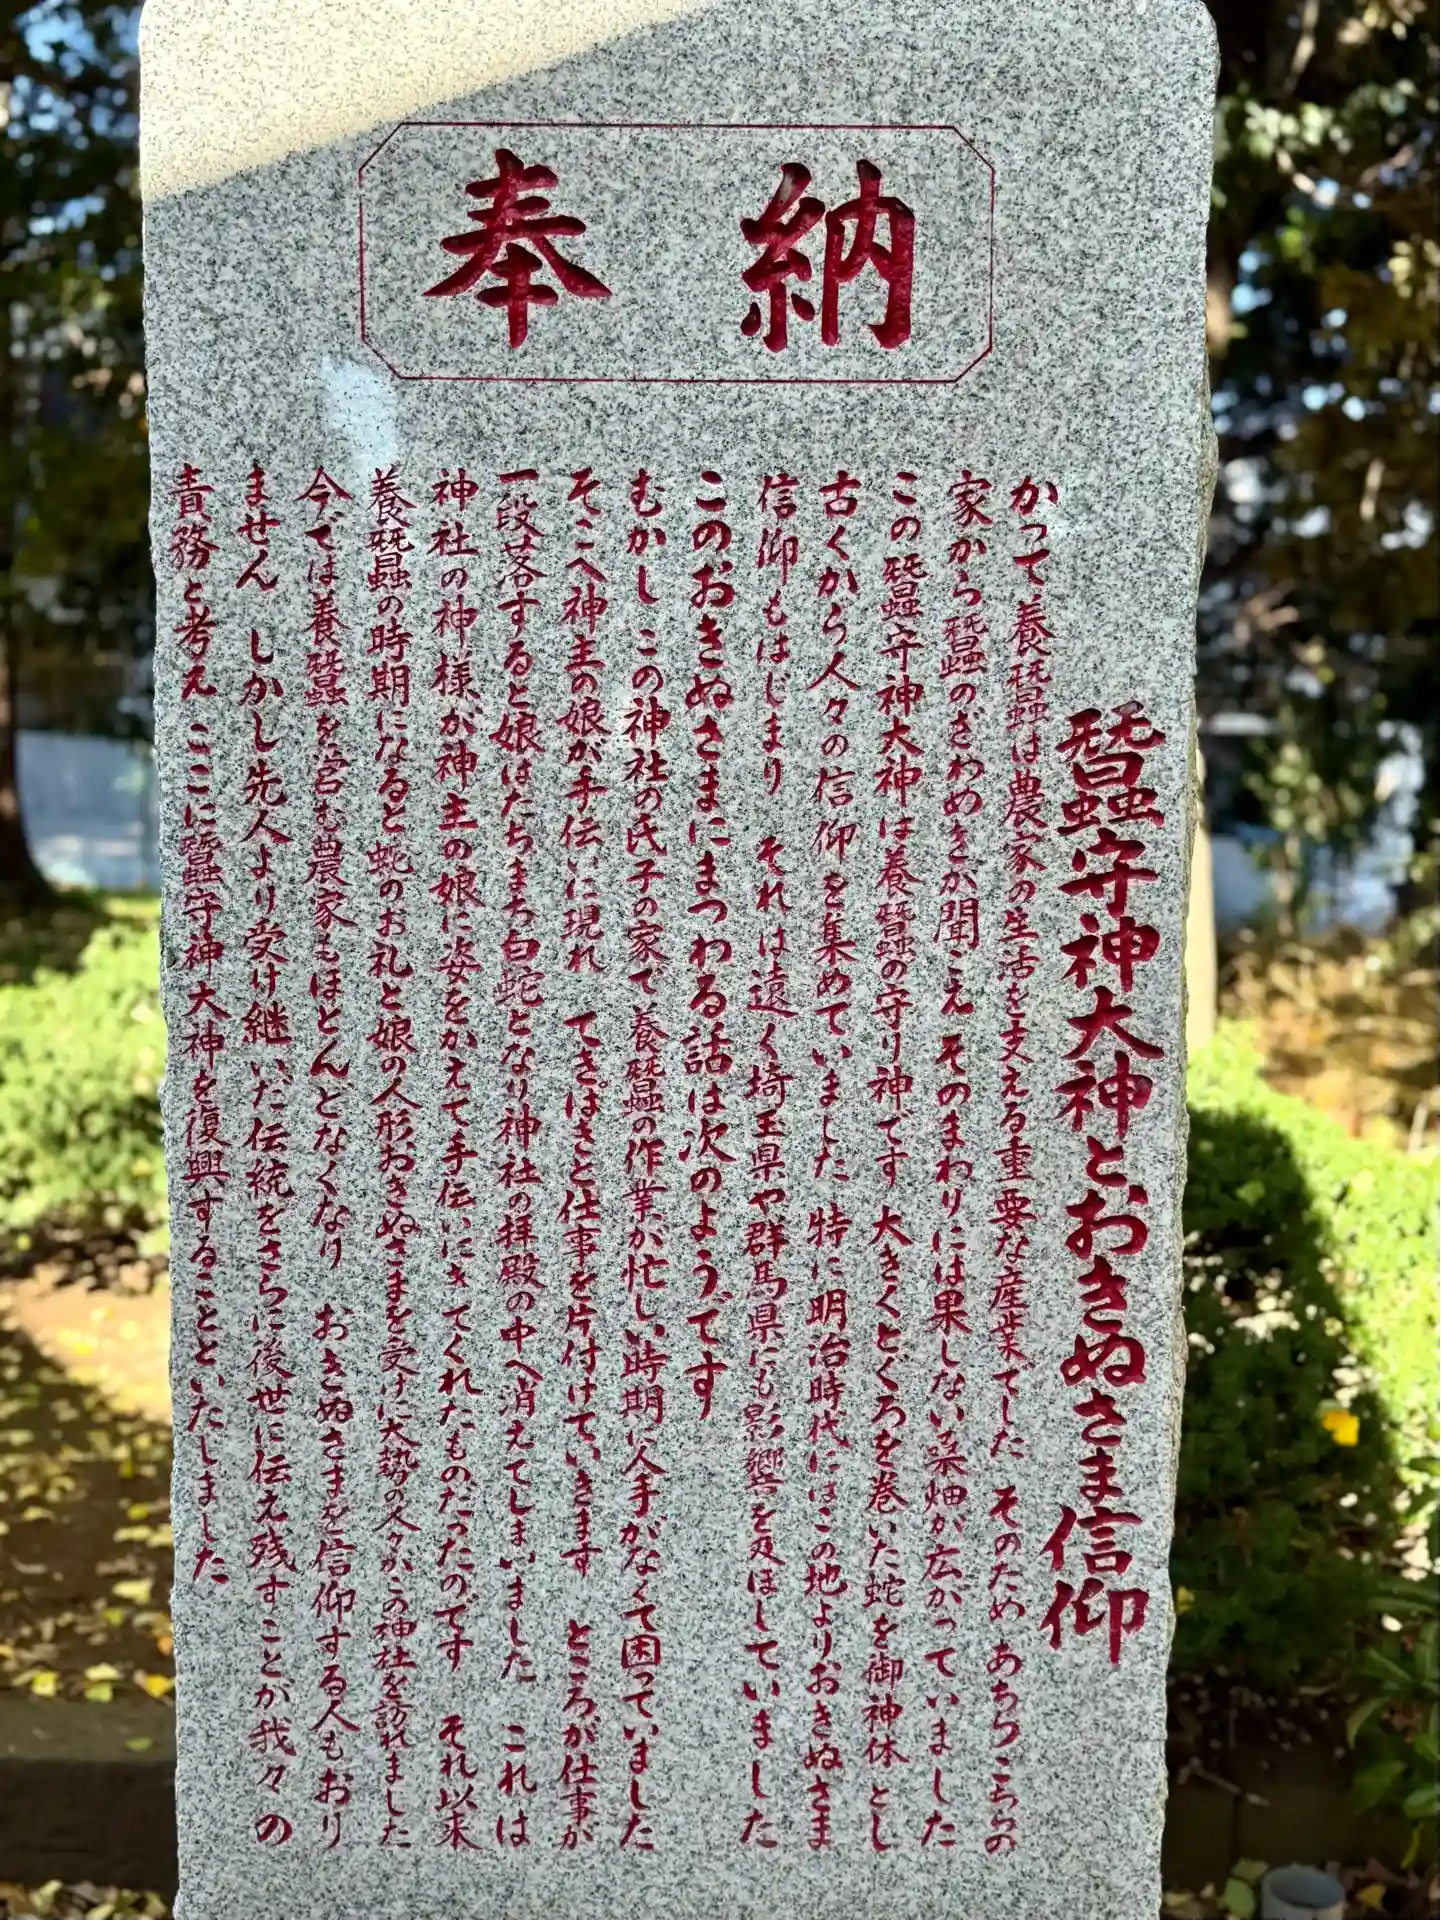 奉納
蠶守神大神とおきぬさま信仰
かつて養蠶は農家の生活を支える重要な産業でした そのため あちらこちらの
家から蠶のざわめきが聞こえ そのまわりには果しない桑畑が広がっていました
この蠶守神大神は養蠶の守り神です 大きくとぐろを巻いた蛇を御神体とし
古くから人々の信仰を集めていました 特に明治時代にはこの地よりおきぬさま
信仰もはじまり それは遠く埼玉県や群馬県にも影響を及ほしていました
このおきぬさまにまつわる話は次のようです
むかし この神社の氏子の家で養蠶の作業が忙しい時期に人手がなくて困っていました
そこへ神主の娘が手伝いに現れ てきぱきと仕事を片付けていきます ところが仕事が
一段落すると娘はたちまち白蛇となり神社の拝殿の中へ消えてしまいました これは
神社の神様が神主の娘に姿をかえて手伝いにきてくれたものだったのです それ以来
養蠶の時期になると蛇のお礼と娘の人形おきぬさまを受けに大勢の人々がこの神社を訪れました
今では養蠶を営む農家もほとんどなくなり おきぬさまを信仰する人もおり
ません しかし先人より受け継いだ伝統をさらに後世に伝え残すことが我々の
責務と考え ここに蠶守神大神を復興することといたしました